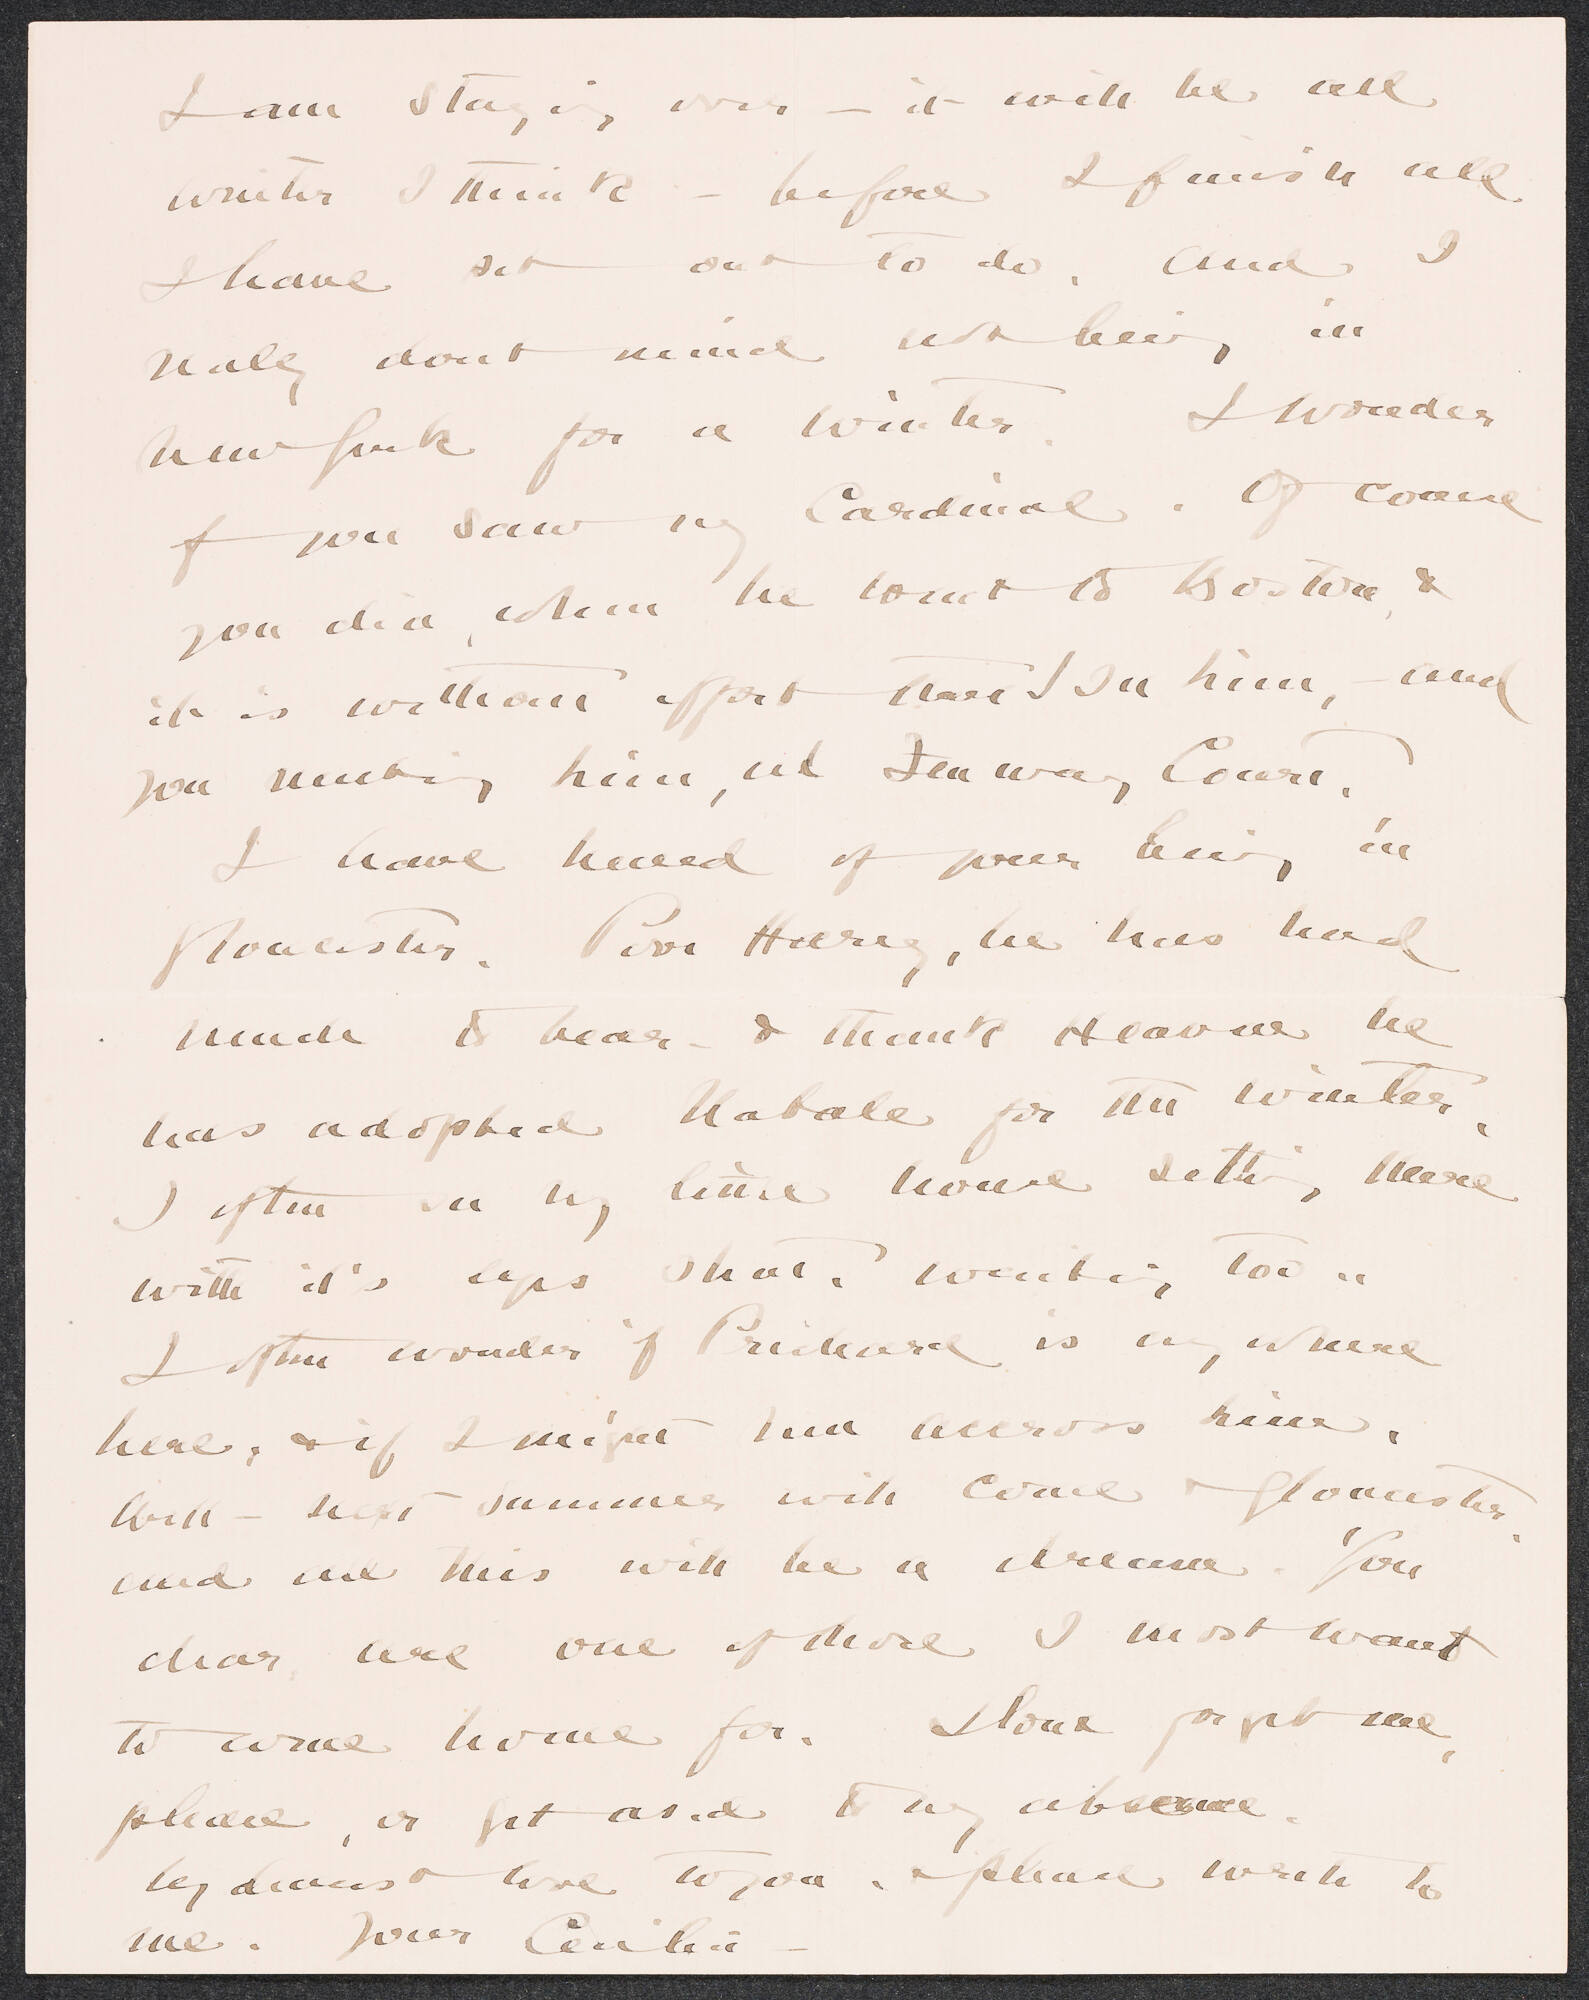 I am staying over – it will be all
winter I think – before I finish all
I have set out to do, and I
really dont mind not being in
New York for a winter. I wonder
if you saw my Cardinal. Of course
you did, when he went to Boston, &
it is without effort that I see him, – and
you meeting him, at Fenway Court.
I have heard of your being in
Gloucester. Poor Harry, he has had
much to bear – & thank Heaven he
has adopted for the winter.
I often see my little house sitting there
with it's eyes shut, waiting too –
I often wonder if Prichard is any where
here, & if I might run accross him.
Well – next summer will come & Gloucester,
and all this will be a dream. You
dear are one of those I most want
to come home for. Dont forget me,
please, or get used to my absence.
My dearest love to you, & please write to
me. Your Cecilia –